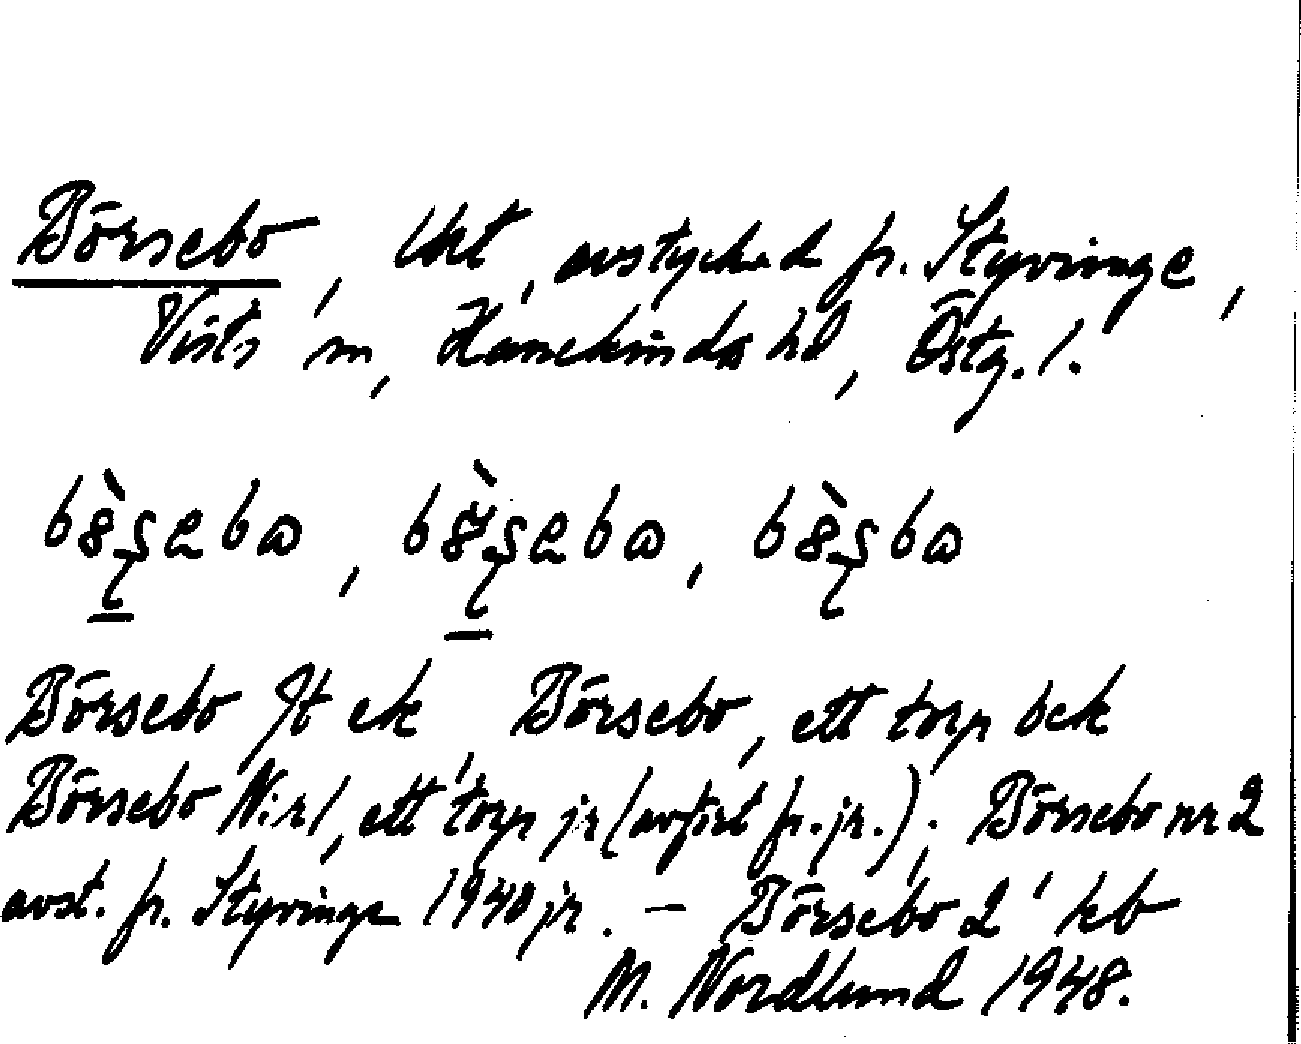 Börsebo, lht, avstyckad fr. Styvinge,
Vists sn, Hanekinds hd, Östg. l.
Börsebo Jt ek, Börsebo, ett torp bek
Börsebo N:r 1, ett torp jr (avfört fr. jr.); Börsebo nr 2
avst. fr. Styvinge 1940 jr. — Börsebo 2 kb
M. Nordlund 1948.